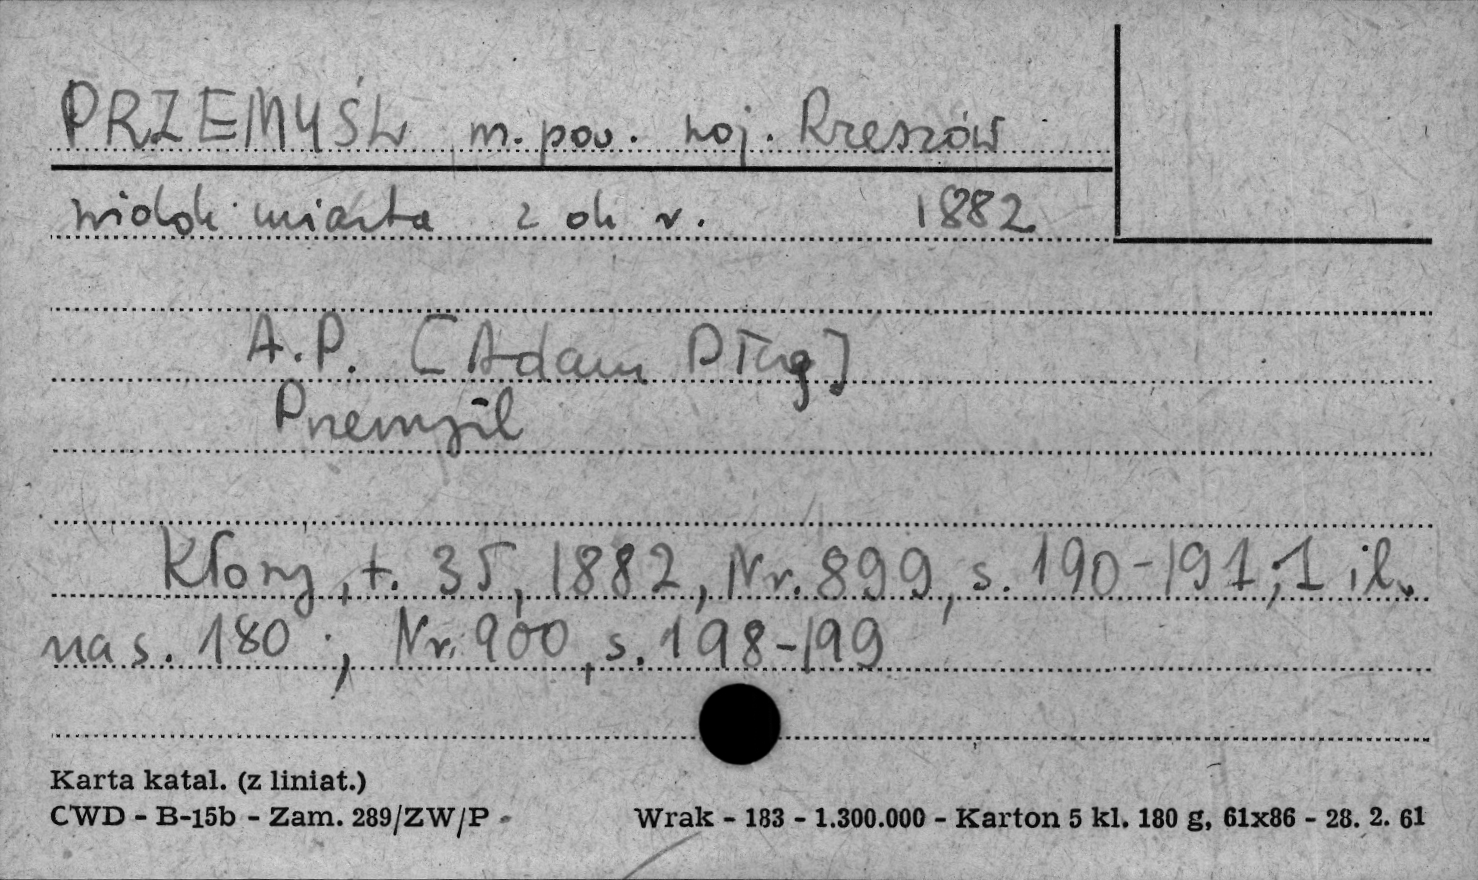 PRZEMYŚL m. pow. woj. Rzeszów
widok miasta z ok r. 1882
A.P. [Adam Pług]
Przemyśl
Kłosy, t. 35, 1882, Nr. 899, s. 190-191; 1 il.
na s. 180; Nr. 900, s. 198-199
Karta katal. (z liniat.)
CWD - B-15b - Zam. 289/ZW/P
Wrak - 183 - 1.300.000 - Karton 5 kl. 180 g, 61x86 - 28. 2. 61